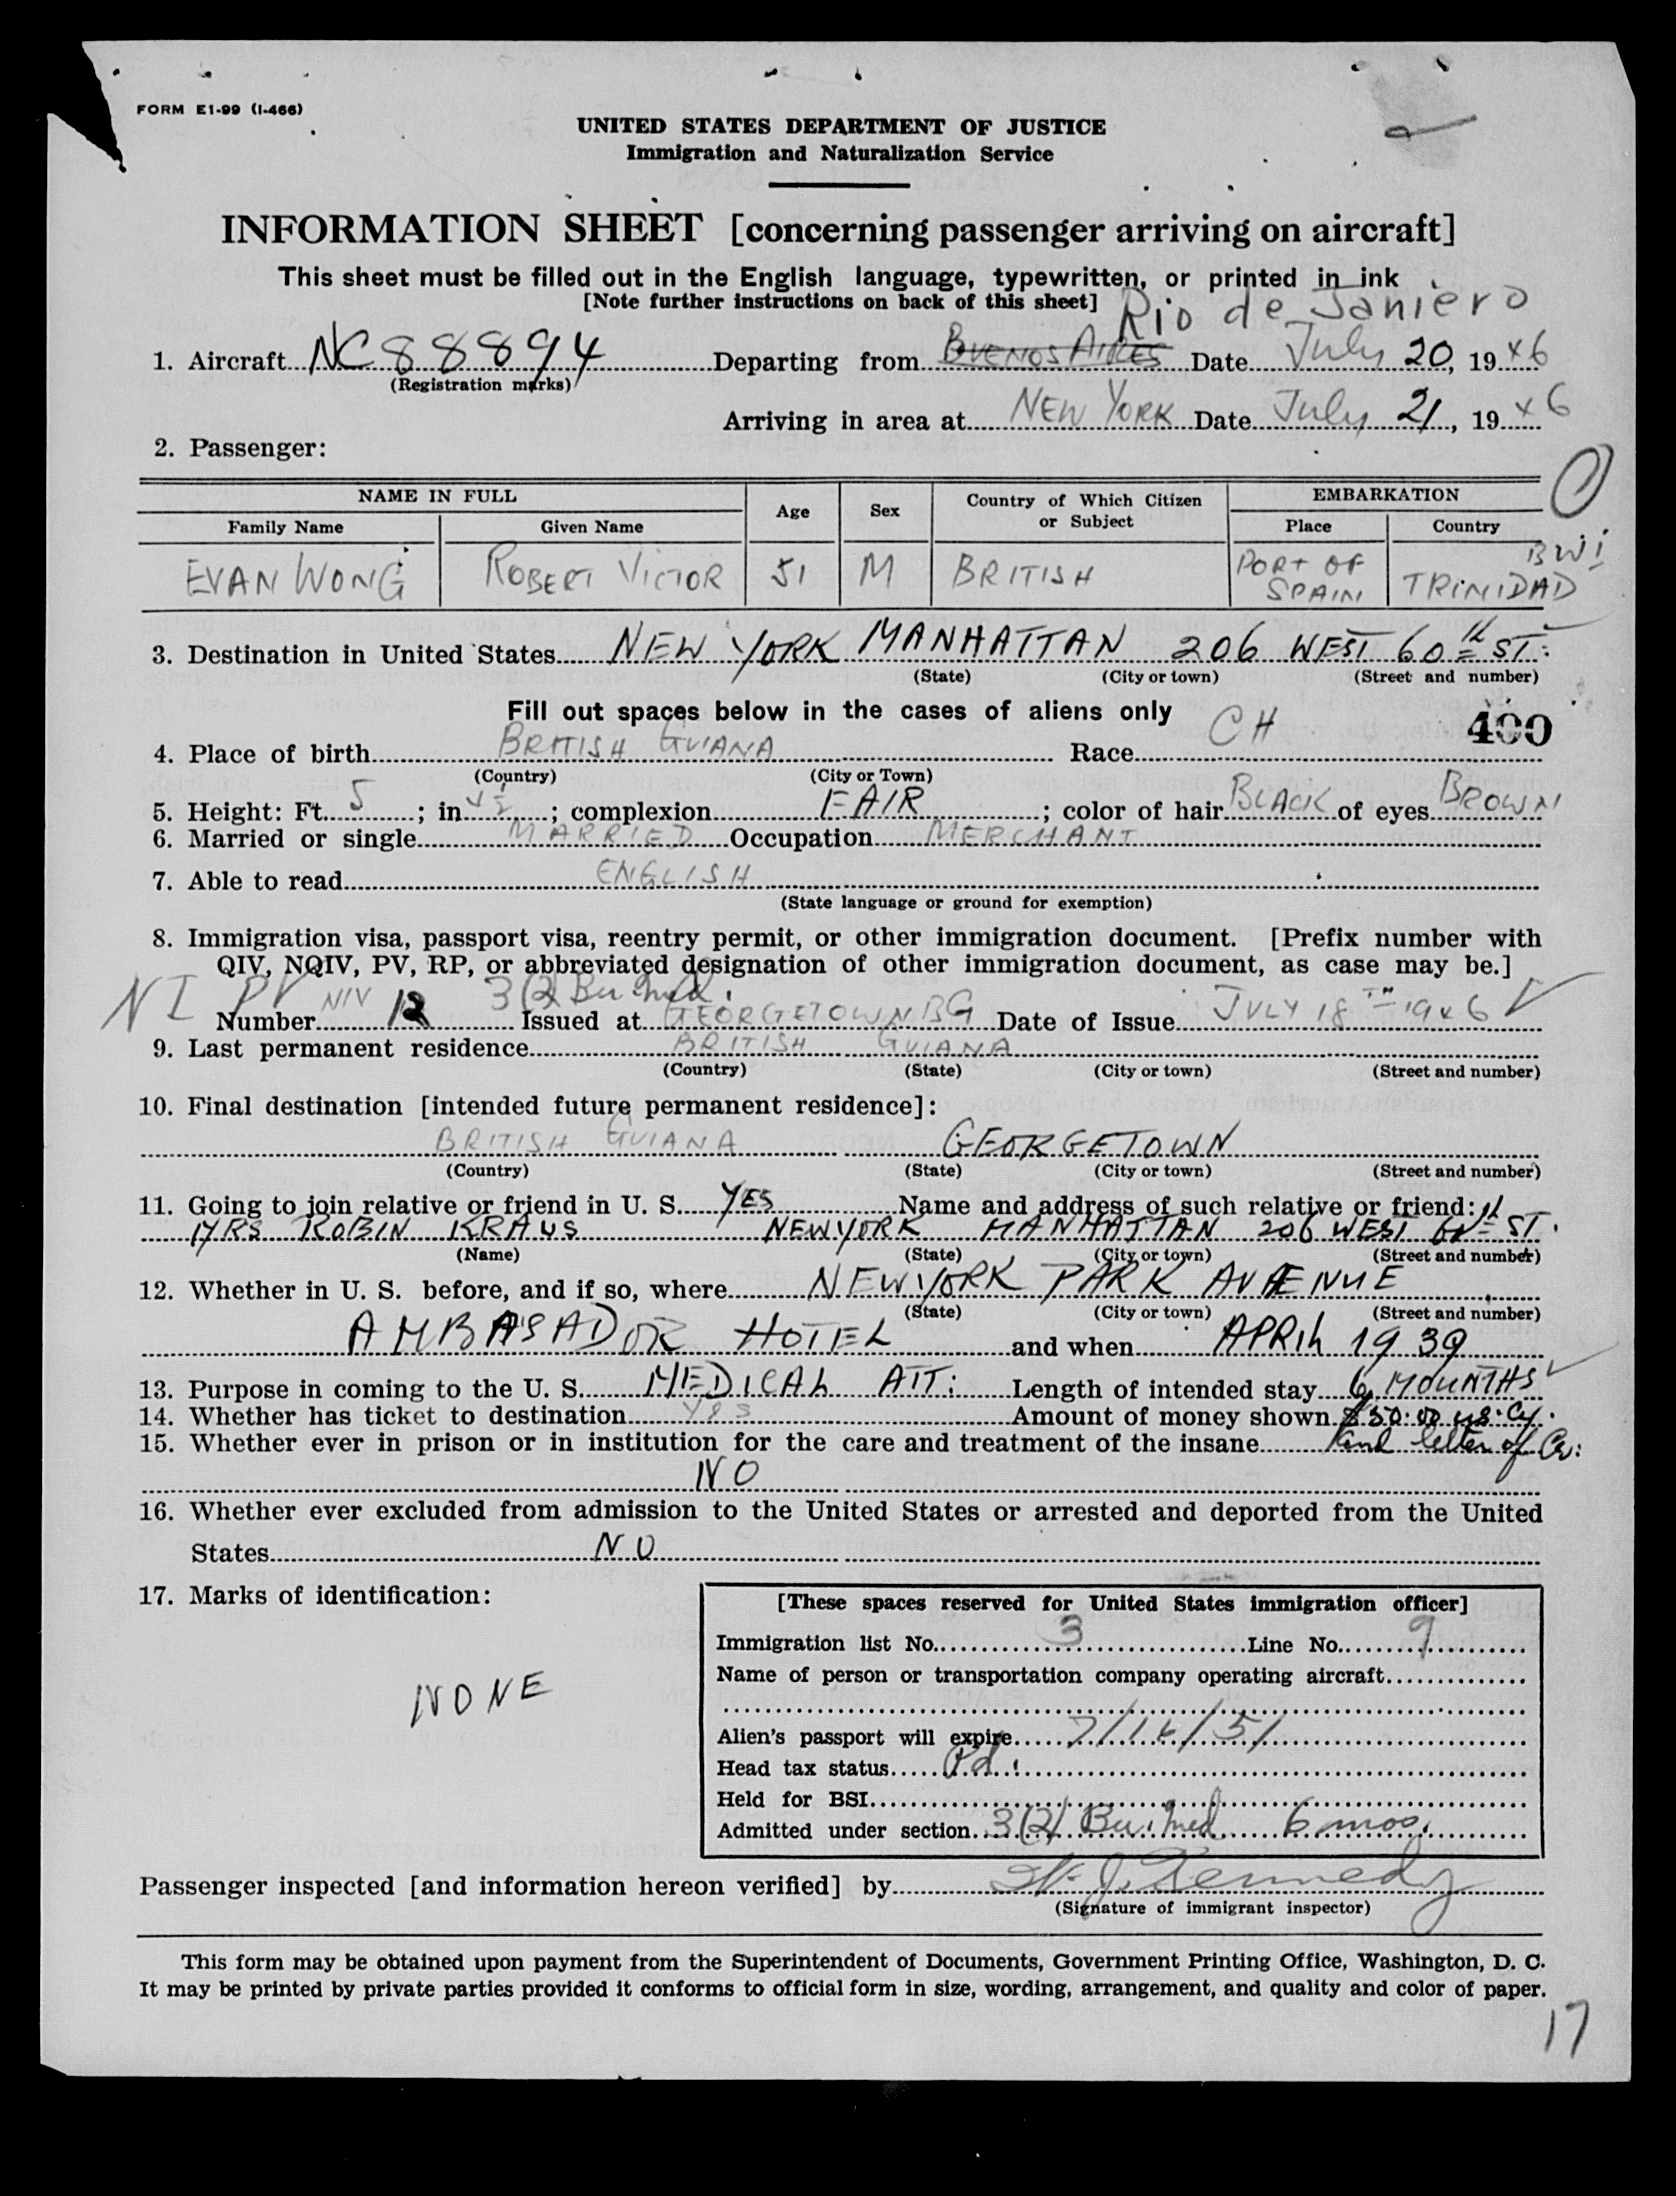 FORM E1-99 (I-466)
UNITED STATES DEPARTMENT OF JUSTICE
Immigration and Naturalization Service
INFORMATION SHEET [concerning passenger arriving on aircraft]
This sheet must be filled out in the English language, typewritten, or printed in ink
[Note further instructions on back of this sheet]
Rio de Janiero
1. Aircraft NC88894 Departing from BUENOS AIRES Date July 20, 19 46
(Registration marks)
Arriving in area at NEW YORK Date July 21, 19 46
2. Passenger:
NAME IN FULL Age Sex Country of Which Citizen or Subject EMBARKATION
Family Name Given Name Place Country
EVAN WONG ROBERT VICTOR 51 M BRITISH PORT OF SPAIN TRINIDAD BWI
3. Destination in United States NEW YORK MANHATTAN 206 WEST 60th ST.
(State) (City or town) (Street and number)
Fill out spaces below in the cases of aliens only
4. Place of birth BRITISH GUIANA Race CH
(Country) (City or Town)
5. Height: Ft. 5; in. 4½; complexion FAIR; color of hair BLACK of eyes BROWN
6. Married or single MARRIED Occupation MERCHANT
7. Able to read ENGLISH
(State language or ground for exemption)
8. Immigration visa, passport visa, reentry permit, or other immigration document. [Prefix number with
QIV, NQIV, PV, RP, or abbreviated designation of other immigration document, as case may be.]
NI PV NIV 3(2) Bu. Med.
Number 12 Issued at GEORGETOWN BG Date of Issue JULY 18TH 1946
9. Last permanent residence BRITISH GUIANA
(Country) (State) (City or town) (Street and number)
10. Final destination [intended future permanent residece]:
BRITISH GUIANA GEORGETOWN
(Country) (State) (City or town) (Street and number)
11. Going to join relative or friend in U. S. YES Name and address of such relative or friend:
MRS ROBIN KRAUS NEW YORK MANHATTAN 206 WEST 60th ST.
(Name) (State) (City or town) (Street and number)
12. Whether in U. S. before, and if so, where NEW YORK PARK AVENUE
(State) (City or town) (Street and number)
AMBASADOR HOTEL and when APRIL 1939
13. Purpose in coming to the U. S. MEDICAL ATT: Length of intended stay 6 MOUNTHS
14. Whether has ticket to destination Yes Amount of money shown $50.00 us. Cy.
15. Whether ever in prison or in institution for the care and treatment of the insane and letter of Cr:
NO
16. Whether ever excluded from admission to the United States or arrested and deported from the United
States NO
17. Marks of identification:
NONE
[These spaces reserved for United States immigration officer]
Immigration list No. 3 Line No. 9
Name of person or transportation company operating aircraft
Alien's passport will expire 7/16/51
Head tax status Pd.
Held for BSI
Admitted under section 3(2) Bu. Med 6 mos.
Passenger inspected [and information hereon verified] by W. J. Kennedy
(Signature of immigrant inspector)
This form may be obtained upon payment from the Superintendent of Documents, Government Printing Office, Washington, D. C.
It may be printed by private parties provided it conforms to official form in size, wording, arrangement, and quality and color of paper.
17